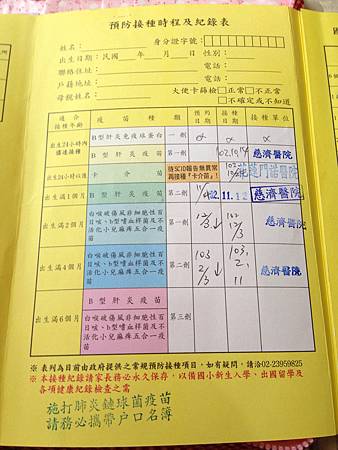 預防接種時程及紀錄表
姓名： 身分證字號：
出生日期：民國 年 月 日 性別：
聯絡住址： 電話：
戶籍地址： 電話：
母親姓名： 大便卡篩檢□正常□不正常
□不確定或不知道
適合接種年齡 疫苗種類 劑別 預約日期 接種日期 接種單位
出生24小時內儘速接種 B型肝炎免疫球蛋白 一劑
B型肝炎疫苗 第一劑 102.10.14 慈濟醫院
出生24小時以後 卡介苗 待SCID報告無異常再接種「卡介苗」
出生滿1個月 B型肝炎疫苗 第二劑 11/4 102.11.12 慈濟醫院
出生滿2個月 白喉破傷風非細胞性百日咳、b型嗜血桿菌及不活化小兒麻痺五合一疫苗 第一劑 慈濟醫院
出生滿4個月 白喉破傷風非細胞性百日咳、b型嗜血桿菌及不活化小兒麻痺五合一疫苗 第二劑 103 2/3 103. 2. 11 慈濟醫院
出生滿6個月 B型肝炎疫苗 第三劑
白喉破傷風非細胞性百日咳、b型嗜血桿菌及不活化小兒麻痺五合一疫苗
※表列為目前由政府提供之常規預防接種項目，如有疑問，請洽02-23959825
※本接種紀錄請家長務必永久保存，以備國小新生入學、出國留學及
各項健康紀錄檢查之需
施打肺炎鏈球菌疫苗
請務必攜帶戶口名簿